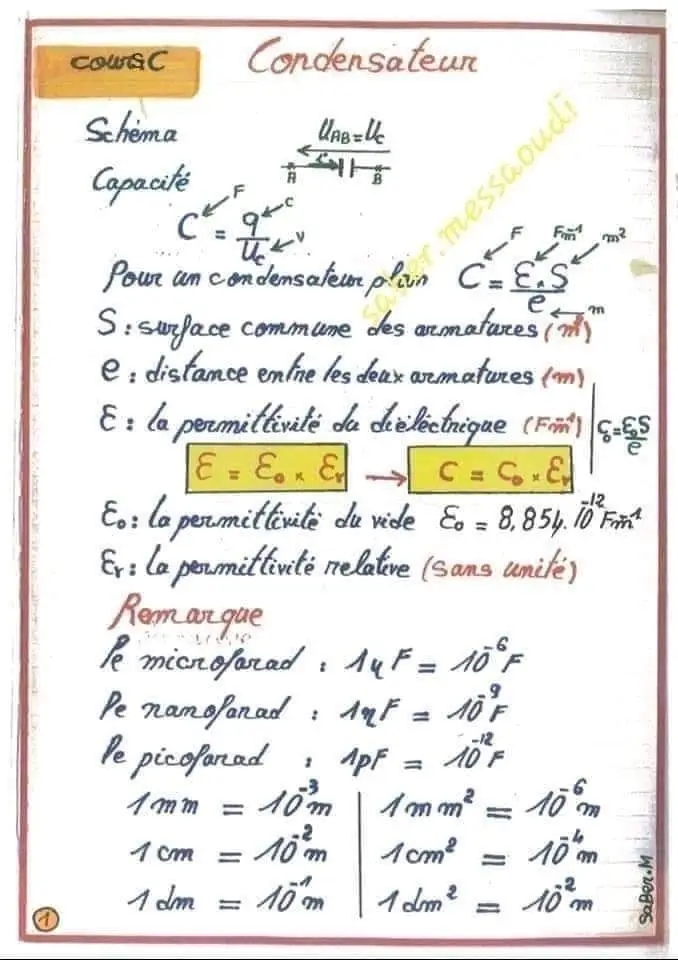 cours C
Condensateur
saber.messaoudi
Schéma
U_AB = U_c
A B
Capacité
C = q / U_c
F C V
Pour un condensateur plan C = ε.S / e
F Fm⁻¹ m² m
S : surface commune des armatures (m²)
e : distance entre les deux armatures (m)
ε : la permittivité du diélectrique (Fm⁻¹) C₀ = ε₀S / e
ε = ε₀ × εr → C = C₀ × εr
ε₀ : la permittivité du vide ε₀ = 8,854.10⁻¹² Fm⁻¹
εr : la permittivité relative (sans unité)
Remarque
le microfarad : 1μF = 10⁻⁶ F
le nanofarad : 1ηF = 10⁻⁹ F
le picofarad : 1pF = 10⁻¹² F
1 mm = 10⁻³ m 1 mm² = 10⁻⁶ m
1 cm = 10⁻² m 1 cm² = 10⁻⁴ m
1 dm = 10⁻¹ m 1 dm² = 10⁻² m
SaBer.M
1